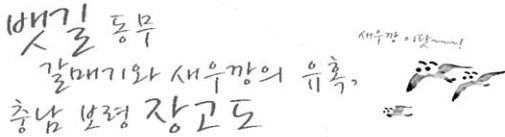 뱃길 동무
갈매기와 새우깡의 유혹,
충남 보령 장고도
새우깡 이닷~~~!